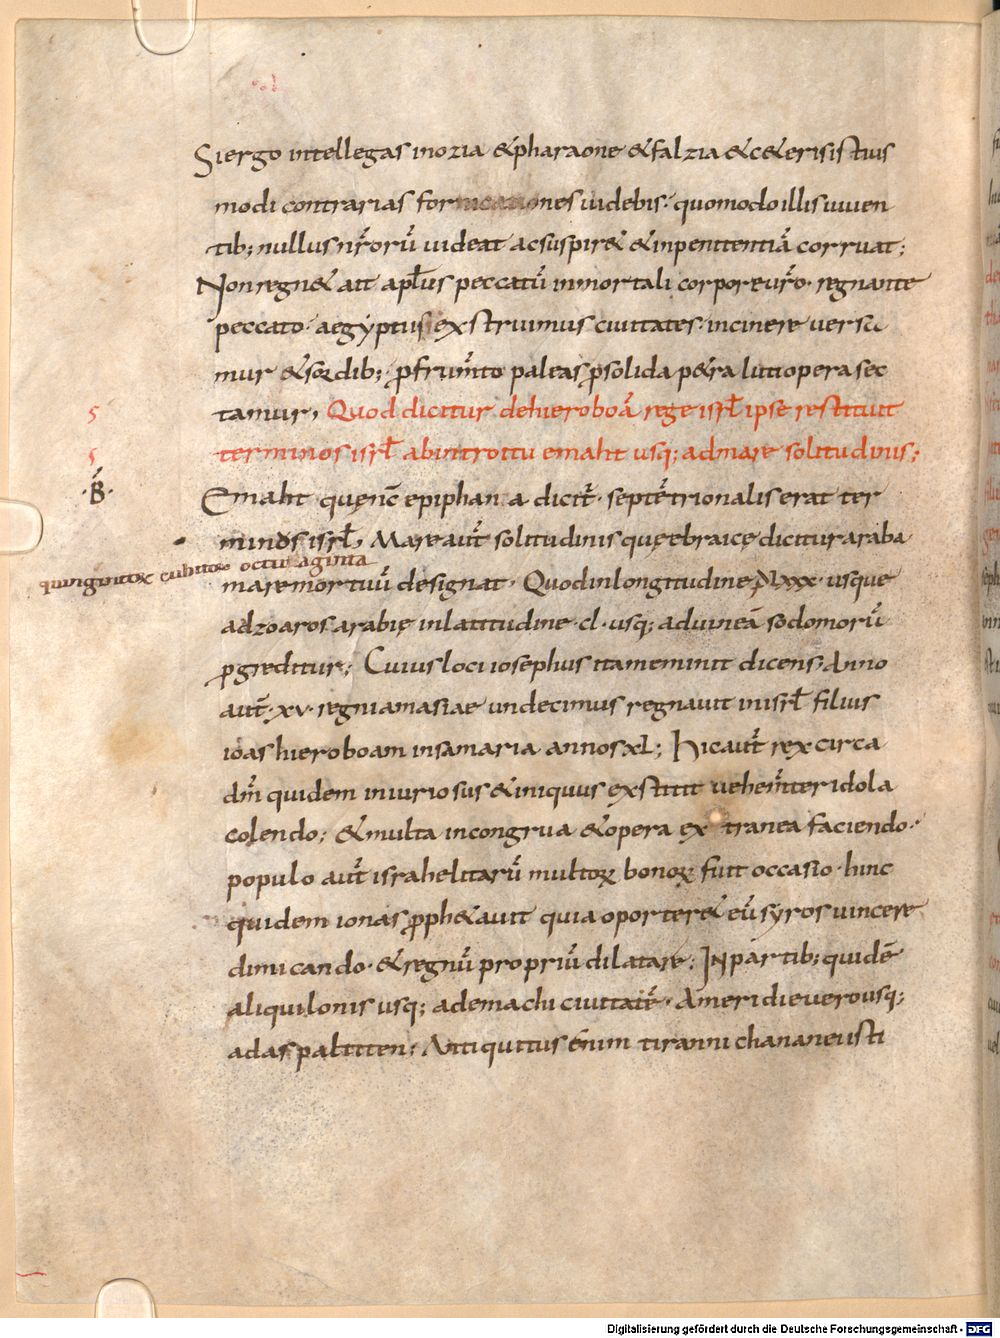 Si ergo intellegas in ozia &pharaone &falzia &c&eris istius
modi contrarias fornicationes uidebis· quomodo illis uiuen
tib; nullus nr̄orū uideat ac suspir& &inpenitentiā corruat;
Non regn& ait apłus peccatū in mortali corpore ur̄o· regnante
peccato· aegyptus exstruimus ciuitates· in cinere uersa
mur &sordib; ꝓ frum̄to paleas ꝓ solida p&ra luti opera sec
tamur, Quod dicitur de hieroboā rege isrł ipse restituit
terminos isrł ab introitu emaht usq; ad mare solitudinis;
5
5
·B̄·
Emaht quęnc̄ epiphania dicit̄· septētrionalis erat ter
minus isrł, Mare aut̄ solitudinis quę ebraice dicitur araba
quingintorꝝ cubitorꝝ octuaginta
mare mortuū designat· Quod in longitudine DLxxx· usque
ad zoaros arabię in latitudine· cl· usq; ad uineā sodomorū
ꝓgreditur; Cuius loci iosephus ita meminit dicens· Anno
aut̄· xv· regni amasiae undecimus regnauit in isrł filius
ioas hieroboam in samaria annos xL; Hic aut̄ rex circa
dm̄ quidem iniuriosus &iniquus exstitit uehem̄ter idola
colendo; &multa incongrua &opera extranea faciendo·
populo aut̄ israhelitarū multorꝝ bonorꝝ fuit occasio· hinc
quidem ionas ꝓph&auit quia oporter& eū syros uincere
dimicando· &regnū propriū dilatare; In partib; quidē
aliquilonis usq; ad emachi ciuitatē· A meridie uero usq;
ad aspaltiten; Antiquitus enim tiranni chananei isti